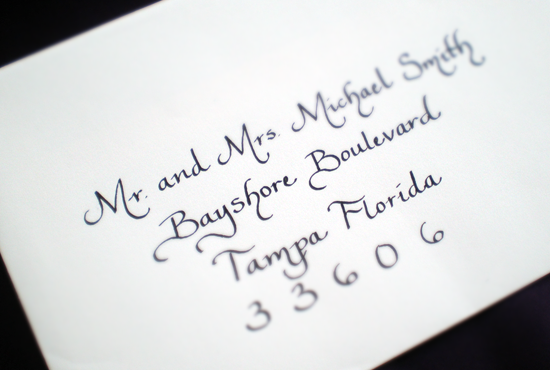 Mr. and Mrs. Michael Smith
Bayshore Boulevard
Tampa Florida
33606